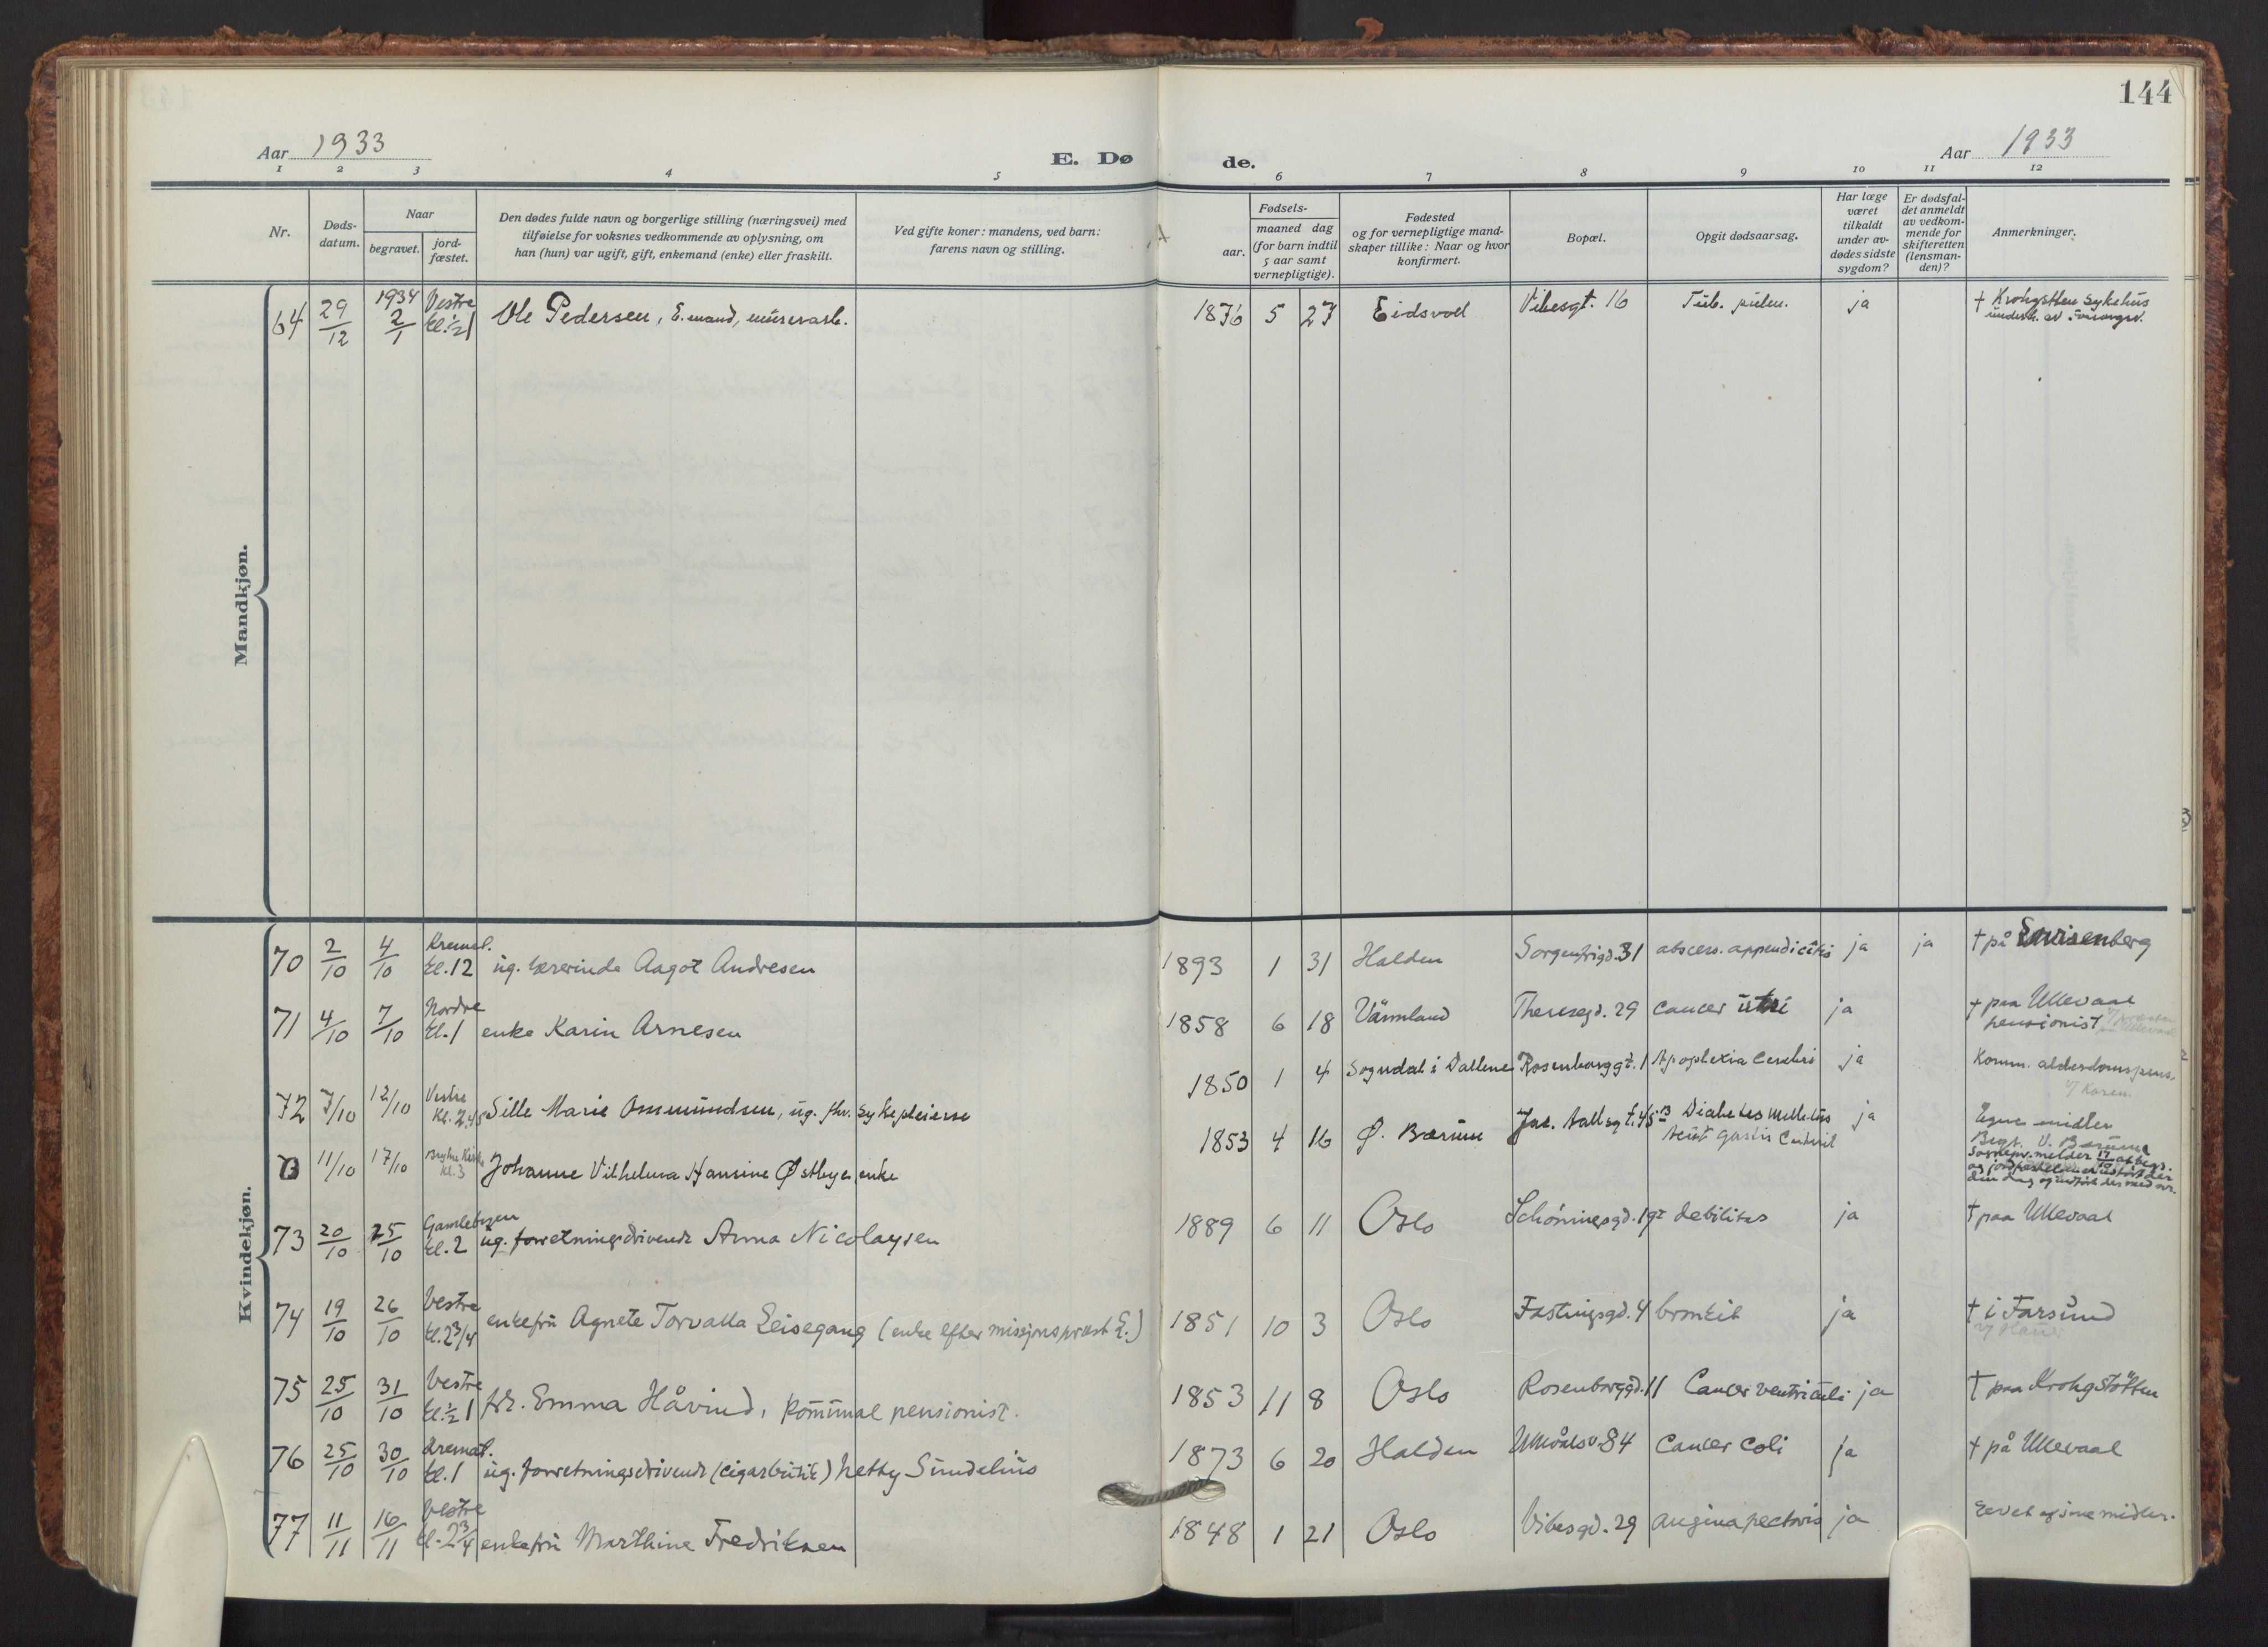 144
Aar 1933
E. Dø de.
Aar 1933
1 2 3 4 5 6 7 8 9 10 11 12
Nr.
Døds-
datum.
Naar
begravet.
jord-
fæstet.
Den dødes fulde navn og borgerlige stilling (næringsvei) med
tilføielse for voksnes vedkommende av oplysning, om
han (hun) var ugift, gift, enkemand (enke) eller fraskilt.
Ved gifte koner: mandens, ved barn:
farens navn og stilling.
Fødsels-
aar.
maaned dag
(for barn indtil
5 aar samt
vernepligtige).
Fødested
og for vernepligtige mand-
skaper tillike: Naar og hvor
konfirmert.
Bopæl.
Opgit dødsaarsag.
Har læge
været
tilkaldt
under av-
dødes sidste
sygdom?
Er dødsfal-
det anmeldt
av vedkom-
mende for
skifteretten
(lensman-
den)?
Anmerkninger.
Mandkjøn.
64 29/12 1934 2/1 Vestre kl. ½1 Ole Pedersen, E.mand, murerarb. 1876 5 27 Eidsvol Vibesgt. 16 Tub. pulm. ja † Krohgstten sykehus
Kvindekjøn.
70 2/10 4/10 Kremat. kl. 12 ug. lærerinde Aagot Andresen 1893 1 31 Halden Sorgenfrigd. 31 abscess. appendicitis ja ja † på Lovisenberg
71 4/10 7/10 Nordre kl. 1 enke Karin Arnesen 1858 6 18 Värmland Theresegd. 29 cancer uteri ja † paa Ullevaal
pensionist
72 7/10 12/10 Vestre Kl. 2.45 Sille Marie Ommundsen, ug. fhv. sykepleierse 1850 1 4 Sogndal i Dallene Rosenborggt. 1 Apoplexia cerebri ja Komm. alderdomspens.
11/10 17/10 Kl. 3 Johanne Vilhelma Hansine Østbye enke 1853 4 16 Ø. Bærum Jac. Aallsgt. 45 B Diabetes mellitus ja Egne midler
Begr. V. Bærum
73 20/10 25/10 Gamlebyen kl. 2 ug. forretningsdrivende Anna Nicolaysen 1889 6 11 Oslo Schøningsgd. 19 debilitas ja † paa Ullevaal
74 19/10 26/10 Vestre kl. 2 3/4 enkefru Agnete Torvalla Leisegang (enke efter misjonsprest L.) 1851 10 3 Oslo Fastingsgd. 4 bronkit ja † i Farsund
75 25/10 31/10 Vestre kl. ½1 frk. Emma Håvind, kommunal pensionist. 1853 11 8 Oslo Rosenborggd. 11 Cancer ventriculi ja † paa Krohgstøtten
76 25/10 30/10 Kremat. kl. 1 ug. forretningsdrivende (cigarbutik) Netty Sundelius 1873 6 20 Halden Ullevålsv. 84 Cancer coli ja † på Ullevaal
77 11/11 16/11 Vestre kl. 2 3/4 enkefru Marthine Fredriksen 1848 1 21 Oslo Vibesgd. 29 angina pectoris ja Levet af sine midler.